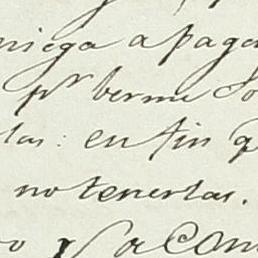 niega a paga
pr berme So
las: en fin q
no tenerlas.